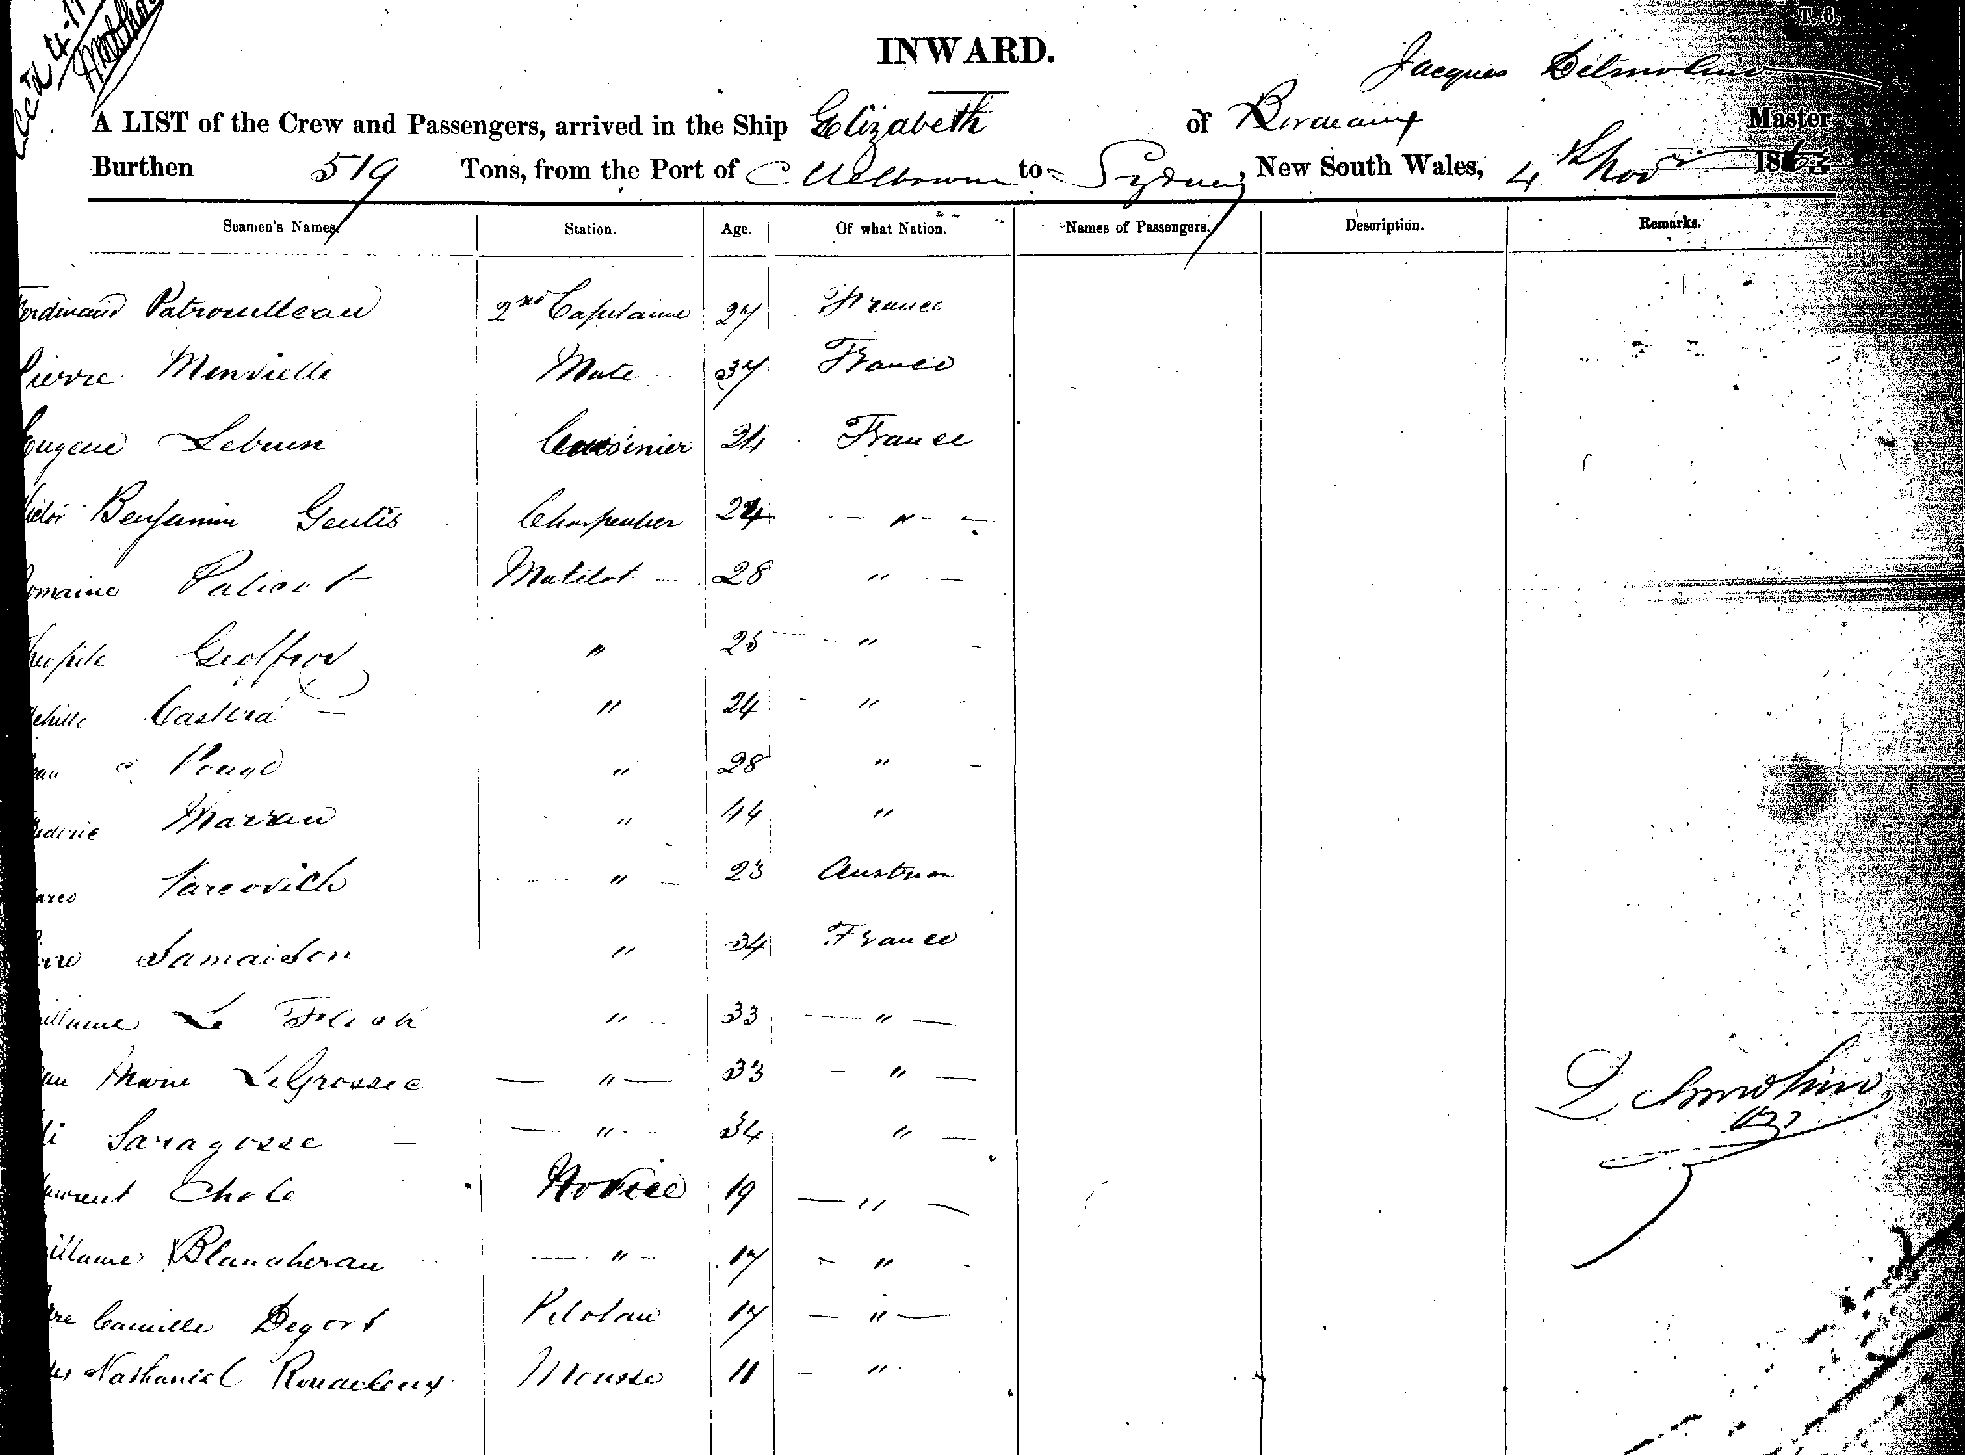 T. 8.
INWARD.
Jacques Delmolino
A LIST of the Crew and Passengers, arrived in the Ship Elizabeth of Bordeaux Master
Burthen 519 Tons, from the Port of Melbourne to Sydney New South Wales, 4th Novr 186
Seamen's Names. Station. Age. Of what Nation. Names of Passengers. Description. Remarks.
Ferdinand Patrouilleau 2nd Capitaine 27 France
Pierre Menvielle Mate 37 France
Eugene Lebrun Cuisinier 24 France
Benjamin Gentis Charpentier 24 "
omaine Paliout Matelot 28 "
Geoffroy " 25 "
Castera " 24 "
Pouge " 28 "
ederic Marrau " 44 "
arco Varcovich " 23 Austrian
Lamaison " 34 France
uillaume Le Floch " 33 "
Marie LeGrossec " 33 "
Saragosse " 34 "
aurent Chole Novice 19 "
uillaume Blancheran " 17 "
re Camille Degort Pilotau 17 "
Nathaniel Mousse 11 "